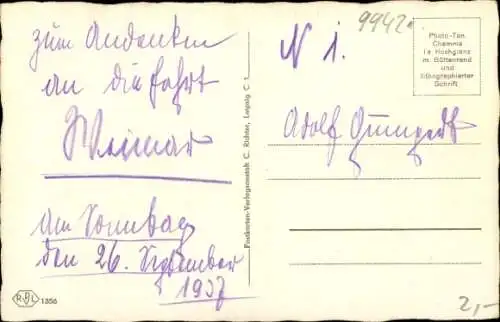 zum Andenken
an die Fahrt
Weimar
am Sonntag
den 26. September
1937
N 1.
9942
Photo-Ton
Chamois
in Hochglanz
m. Büttenrand
und
lithographierter
Schrift
Adolf
Postkarten-Verlagsanstalt C. Richter, Leipzig C 1
1356
2,-